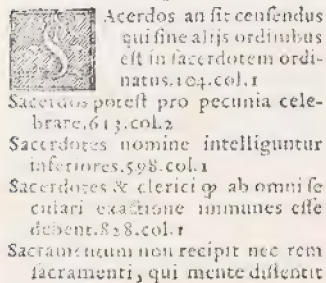 SAcerdos an sit censendus
qui sine alijs ordinibus
est in sacerdotem ordi-
natus.104.col.1
Sacerdos potest pro pecunia cele-
brare.613.col.2
Sacerdotes nomine intelliguntur
inferiores.598.col.1
Sacerdotes & clerici ꝙ ab omni se
culari exactione immunes esse
debent.828.col.1
Sacramentum non recipit nec rem
sacramenti, qui mente dissentit